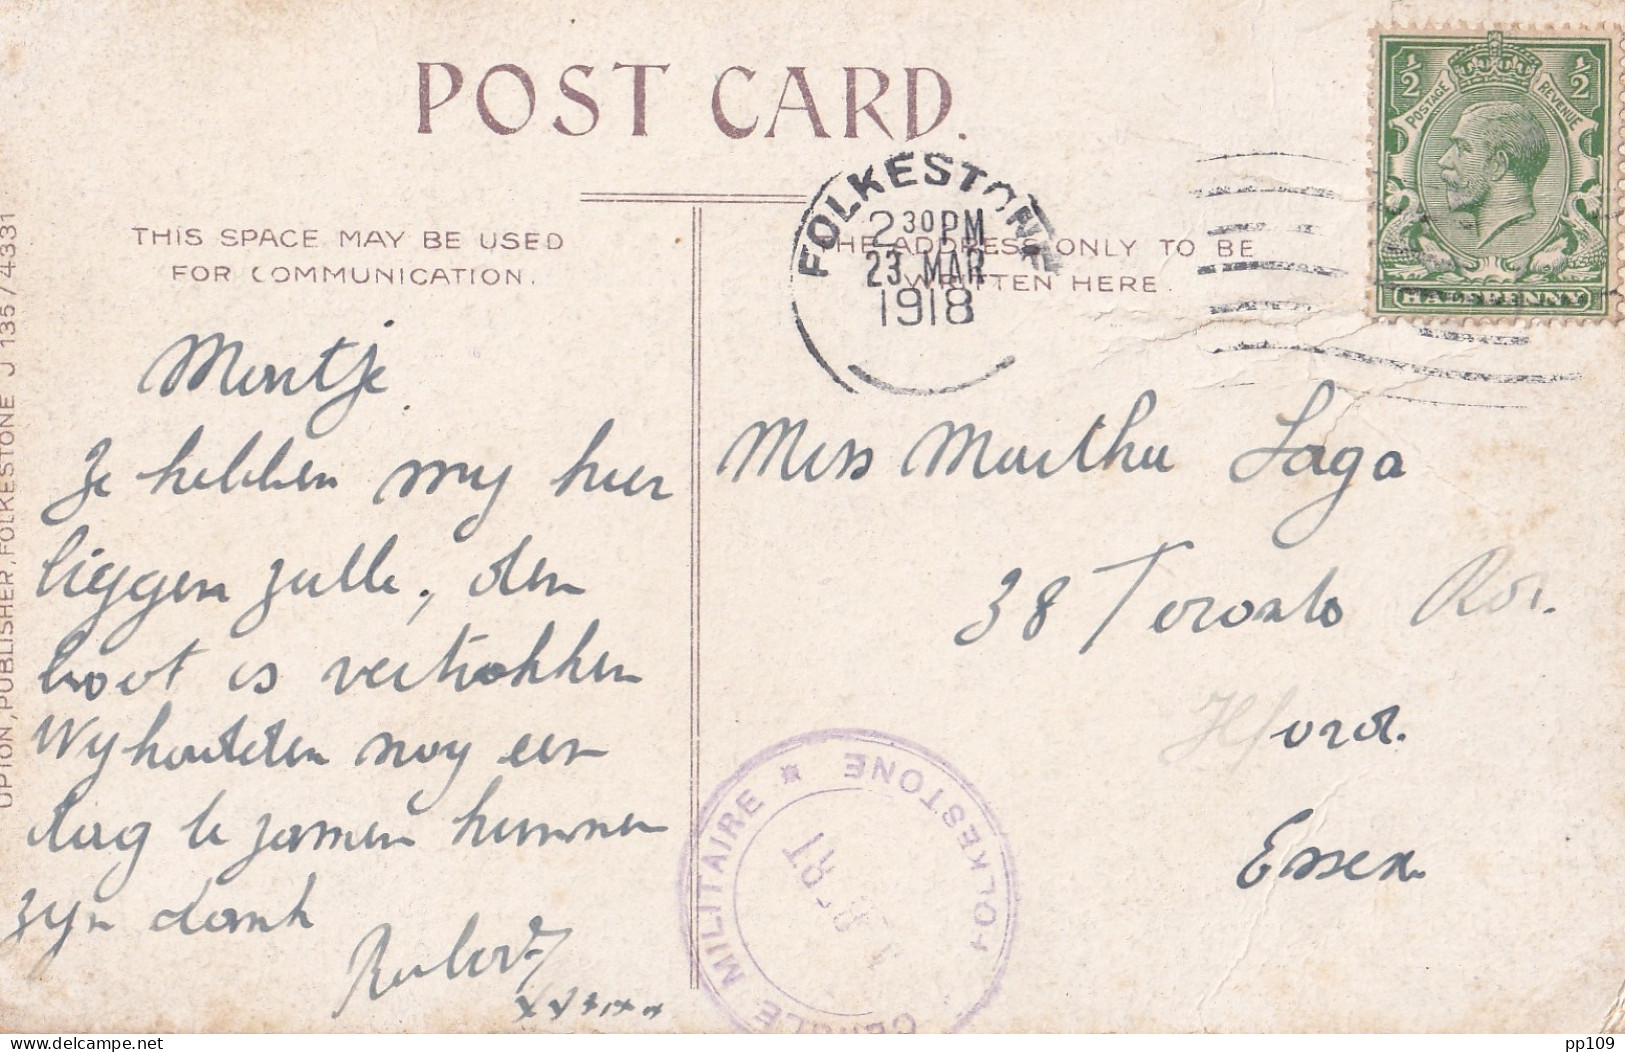 POST CARD.
THIS SPACE MAY BE USED
FOR COMMUNICATION.
THE ADDRESS ONLY TO BE
WRITTEN HERE.
UPTON, PUBLISHER, FOLKESTONE J 135/4331
½ ½
POSTAGE REVENUE
HALFPENNY
FOLKESTONE
2 30 PM
23 MAR
1918
Martje
Ze hebben my hier
liggen zulle, den
boot is vertrokken
Wy houdden nog een
dag te zamen kunnen
zyn dank
Robert
Miss Martha Laga
38 Toronto Rd.
Ilford.
Essex.
CERCLE MILITAIRE * FOLKESTONE
delcampe.net
pp109